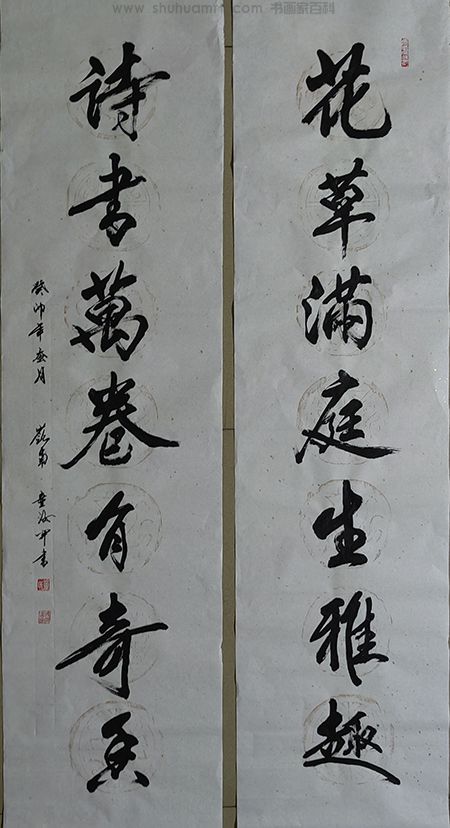 www.shuhuamr.com 书画家百科
花草满庭生雅趣
詩書萬卷有奇香
癸卯年春月